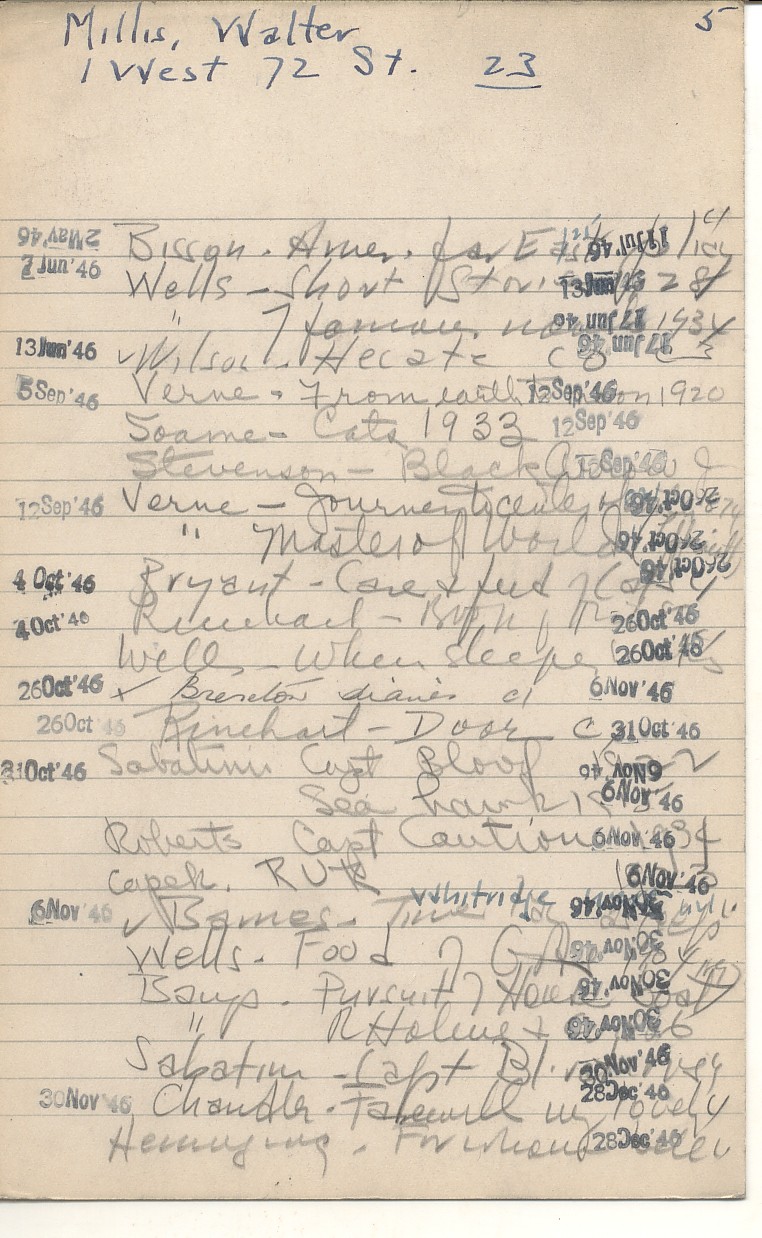 5
Millis, Walter
1 West 72 St. 23
2 May '46 Bisson - Amer. far East 11 Jul '46
7 Jun '46 Wells - Short Stories 13 Jun '46 28
" 7 famous 17 Jun '46 1934
13 Jun '46 ✓ Wilson - Hecate C 17 Jun '46
5 Sep '46 Verne - From earth 12 Sep '46 1920
Soame - Cats 1933 12 Sep '46
Stevenson - Black 12 Sep '46
12 Sep '46 Verne - Journey to center 26 Oct '46
" Master of World 26 Oct '46
4 Oct '46 Bryant - Care & feed of 26 Oct '46
4 Oct '46 Rinehart - 26 Oct '46
Wells - When sleeper 26 Oct '46
26 Oct '46 x Brereton diaries c1 6 Nov '46
26 Oct '46 Rinehart - Door C 31 Oct '46
31 Oct '46 Sabatini Capt Blood 6 Nov '46
Sea hawk 6 Nov '46
Roberts Capt Caution 6 Nov '46 1934
Capek. RUR 6 Nov '46
Whitridge
6 Nov '46 ✓ Barnes - Time 30 Nov '46
Wells - Food of 30 Nov '46
Bangs - Pursuit of House Boat 30 Nov '46
" R Holmes & 30 Nov '46
Sabatini - Capt Bl 30 Nov '46
30 Nov '46 Chandler - Farewell my lovely 28 Dec '46
Hemingway - For whom 28 Dec '46